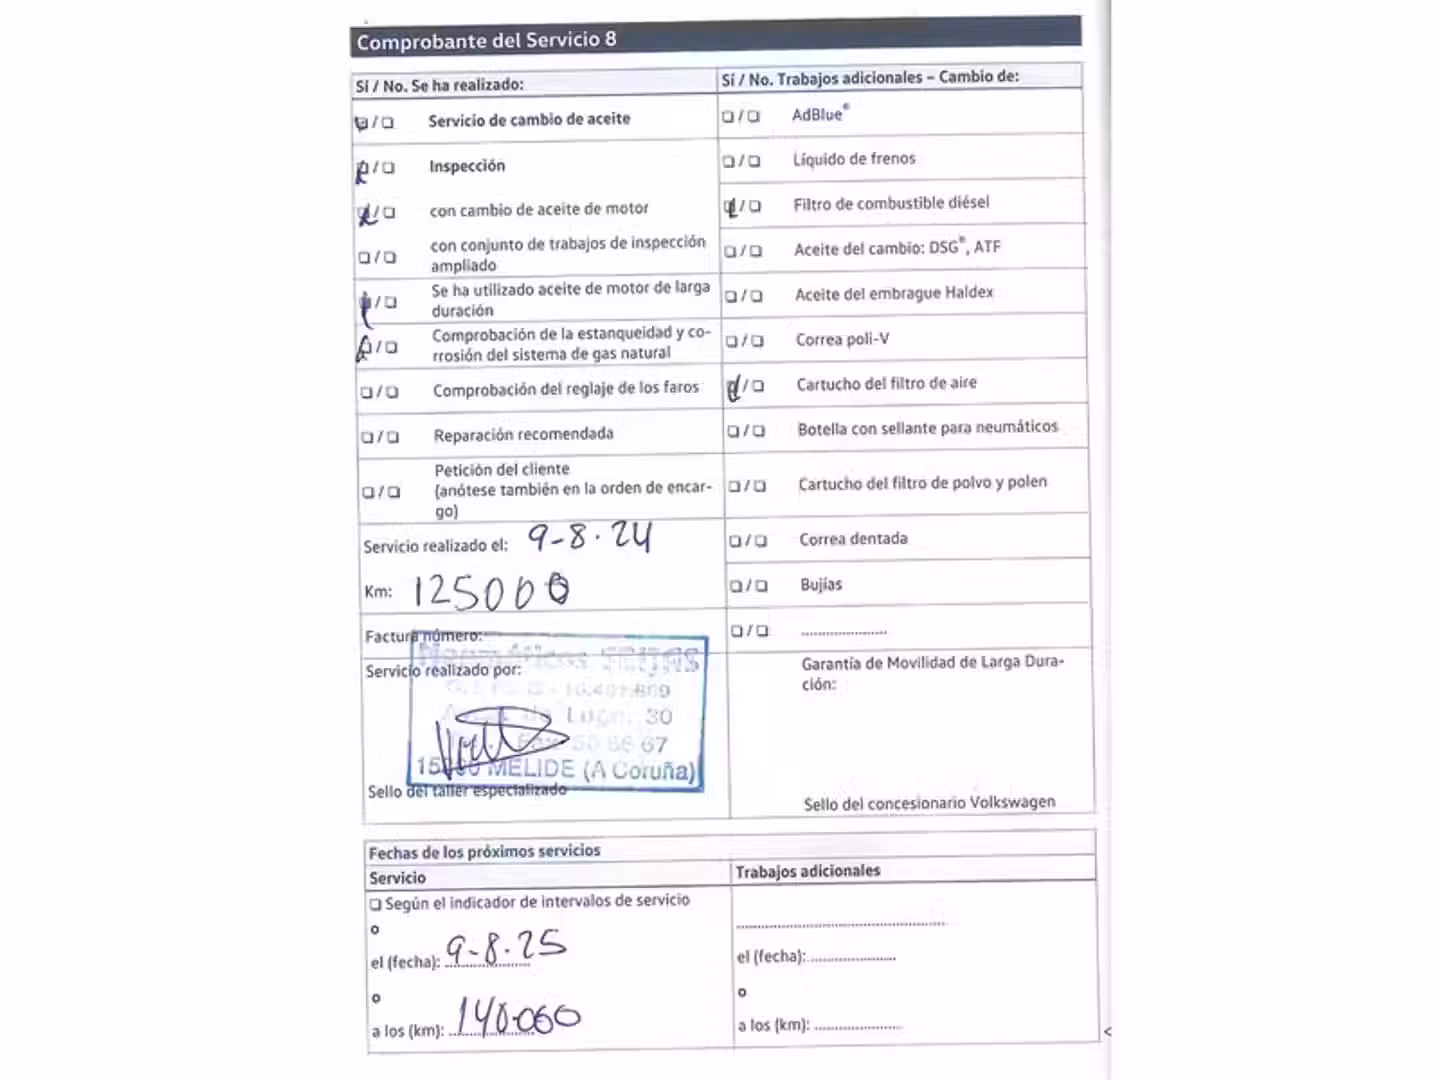 Comprobante del Servicio 8
Sí / No. Se ha realizado:
Servicio de cambio de aceite
Inspección
con cambio de aceite de motor
con conjunto de trabajos de inspección
ampliado
Se ha utilizado aceite de motor de larga
duración
Comprobación de la estanqueidad y co-
rrosión del sistema de gas natural
Comprobación del reglaje de los faros
Reparación recomendada
Petición del cliente
(anótese también en la orden de encar-
go)
Servicio realizado el: 9-8.24
Km: 125000
Factura número:
Servicio realizado por:
Neumáticos SEIJAS
Lugo, 30
Fax 50 66 67
MELIDE (A Coruña)
Sello del taller especializado
Sí / No. Trabajos adicionales – Cambio de:
AdBlue®
Líquido de frenos
Filtro de combustible diésel
Aceite del cambio: DSG®, ATF
Aceite del embrague Haldex
Correa poli-V
Cartucho del filtro de aire
Botella con sellante para neumáticos
Cartucho del filtro de polvo y polen
Correa dentada
Bujías
Garantía de Movilidad de Larga Dura-
ción:
Sello del concesionario Volkswagen
Fechas de los próximos servicios
Servicio
Según el indicador de intervalos de servicio
o
el (fecha): 9-8.25
o
a los (km): 140.000
Trabajos adicionales
el (fecha):
o
a los (km):